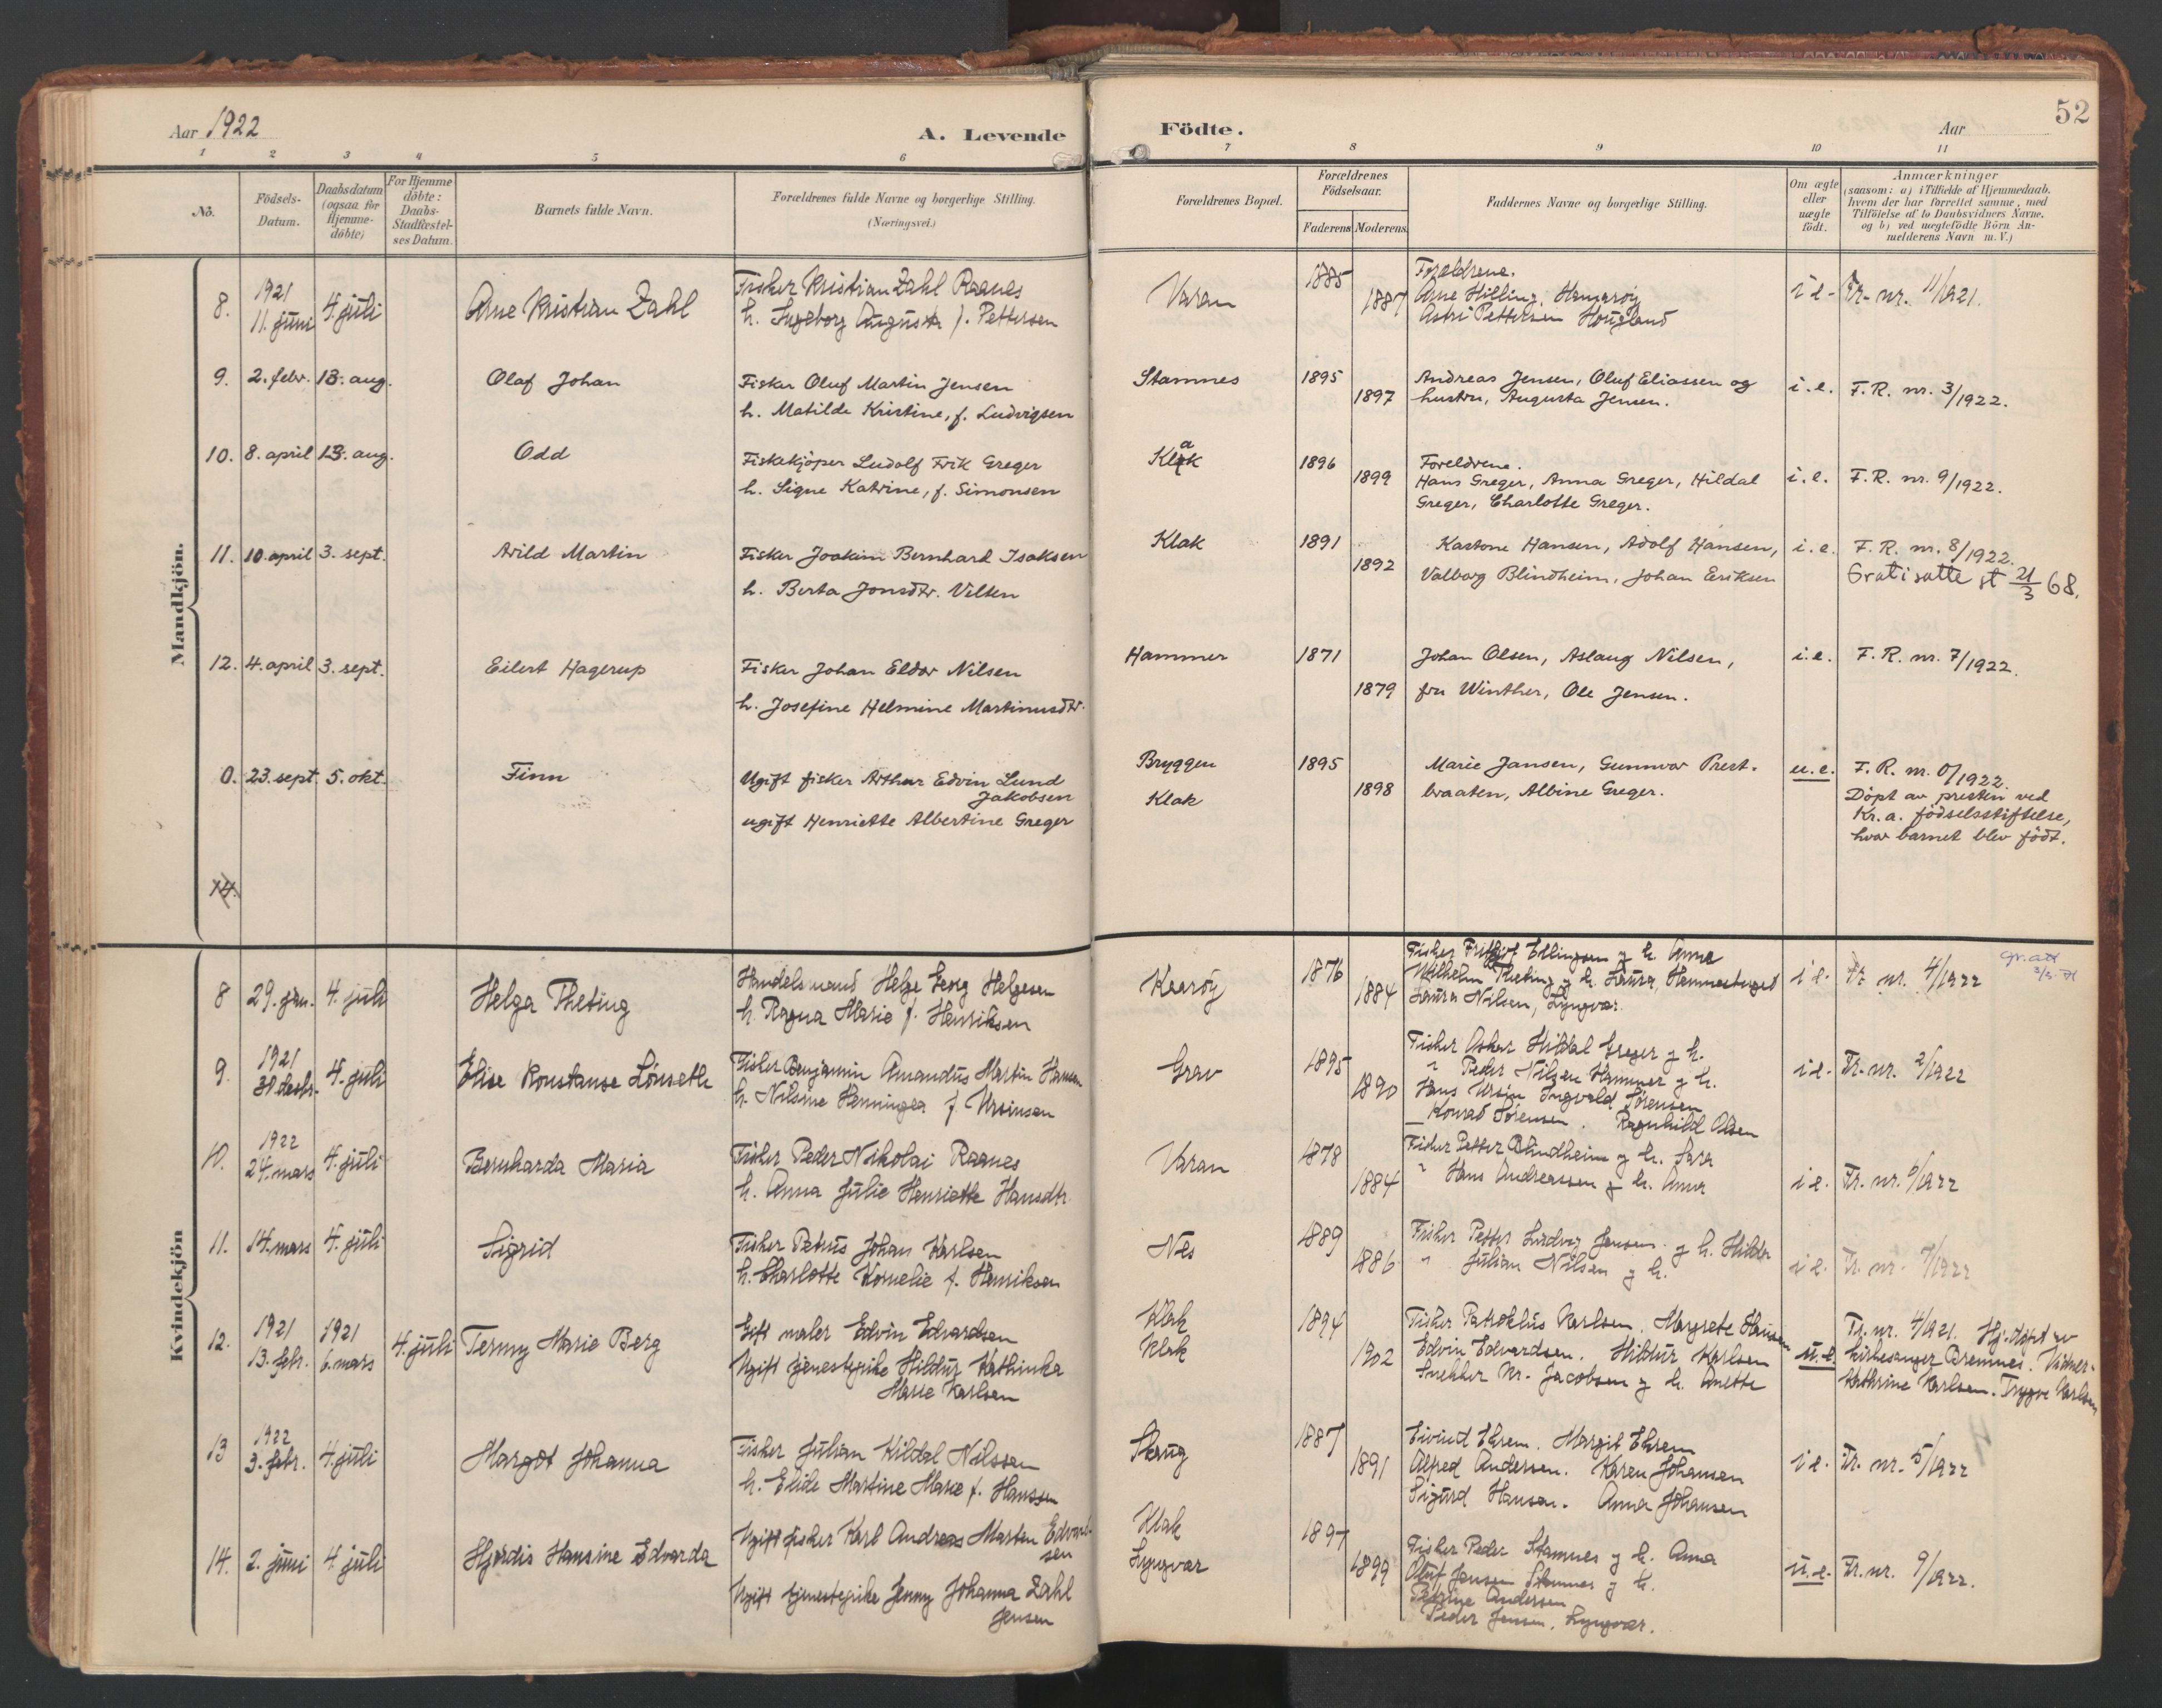 Aar 1922
A. Levende
Födte.
Aar
52
1 2 3 4 5 6 7 8 9 10 11
No.
Födsels-Datum.
Daabsdatum (ogsaa for Hjemme-döbte)
For Hjemme döbte: Daabs-Stadfæstel-ses Datum.
Barnets fulde Navn.
Forældrenes fulde Navne og borgerlige Stilling. (Næringsvei.)
Forældrenes Bopæl.
Forældrenes Födselsaar.
Faderens Moderens
Faddernes Navne og borgerlige Stilling.
Om ægte eller uægte födt.
Anmærkninger
(saasom: a) i Tilfælde af Hjemmedaab. hvem der har forrettet samme, med Tilföielse af to Daabsvidners Navne. og b) ved uægtefödte Börn An-melderens Navn m. V.)
Mandkjön.
8. 1921 11. juni 4. juli Arne Kristian Zahl
Fisker Kristian Zahl Raanes
h. Ingeborg Augusta f. Pettersen
Varan 1885 1887
Forældrene.
Arne Hilling, Hamarøy
Astri Pettersen Hougland
i e. Fr. nr. 11/1921.
9. 2. febr. 13. aug. Olaf Johan
Fisker Oluf Martin Jensen
h. Matilde Kristine, f. Ludvigsen
Stamnes 1895 1897
Andreas Jensen, Oluf Eliassen og
hustru, Augusta Jensen.
i. e. F. R. nr. 3/1922.
10. 8. april 13. aug. Odd
Fiskekjöper Ludolf Frik Greger
h. Signe Katrine, f. Simonsen
Klak 1896 1899
Foreldrene.
Hans Greger, Anna Greger, Hildal
Greger, Charlotte Greger.
i. e. F. R. nr. 9/1922.
11. 10. april 3. sept. Arild Martin
Fisker Joakim Bernhard Isaksen
h. Berta Jonsdtr. Velten
Klak 1891 1892
Kastone Hansen, Adolf Hansen,
Valborg Blindheim, Johan Eriksen
i. e. F. R. nr. 8/1922.
Gratisatte st 21/3 68.
12. 4. april 3. sept. Eilert Hagerup
Fisker Johan Eldor Nilsen
h. Josefine Helmine Martinusdtr.
Hammer 1871 1879
Johan Olsen, Aslaug Nilsen,
fru Winther, Ole Jensen.
i. e. F. R. nr. 7/1922.
0. 23. sept. 5. okt. Finn
Ugift fisker Arthur Edvin Lund
Jakobsen
ugift Henriette Albertine Greger
Bryggen
Klak
1895 1898
Marie Jansen, Gunnvor Prest-
braaten, Albine Greger.
u. e. F. R. nr. 0/1922.
Döpt av presten ved
Kr. a. födselsstiftelse,
hvor barnet blev födt.
14.
Kvindekjön
8 29. jan. 4. juli Helga Theting
Handelsmand Helge Georg Helgesen
h. Ragna Marie f. Henriksen
Kearøy 1876 1884
Fisker Fridtjof Ellingsen g h. Anna
Wilhelm Theting g h. Laura, Hammerstuget
Laura Nilsen, Lyngvær.
i e. Fr nr. 4/1922
gr. att 3/3
9. 1921 31 decbr. 4. juli Elise Konstanse Lönseth
Fisker Benjamin Amandus Martin Hansen
h. Nilsine Henninger f. Ursinsen
Grav 1895 1890
Fisker Asker Hildal Greger g h.
" Peder Nilsen Hammer g h.
Hans Ursin Ingvald Sørensen
Konrad Sørensen. Ragnhild Olsen
i e. Fr. nr. 2/1922
10. 1922 24. mars 4. juli Bernharda Maria
Fisker Peder Nikolai Raanes
h. Anna Julie Henriette Hansdtr.
Varan 1878 1884
Fisker Petter Blindheim g h. Sara
" Hans Andreassen g h. Anna
i e. Fr. nr. 6/1922
11. 14. mars 4. juli Sigrid
Fisker Petrus Johan Karlsen
h. Charlotte Kornelie f. Henriksen
Nes 1889 1886
Fisker Petter Ludvig Jensen. g h. Hilda
" Julian Nilsen g h.
i e. Fr. nr. 7/1922
12. 1921 13. febr. 1921 6. mars 4. juli Termy Marie Berg
Gift maler Edvin Edvardsen
Ugift tjenestepike Hildur Kathinka
Marie Karlsen
Klak
Klak
1894 1902
Fisker Patroklus Karlsen. Margrete Hansen
Edvin Edvardsen. Hildur Karlsen
Snekker Kr. Jacobsen g h. Anette
u. e. Fr. nr. 4/1921. Hj. döpt av
kirkesanger Bremnes. Vidner:
Kathrine Karlsen. Trygve Karlsen
13 1922 3. febr. 4. juli Margot Johanna
Fisker Julian Kildal Nilssen
h. Elide Martine Marie f. Hanssen
Skaug 1887 1891
Eivind Ehrem. Margit Ehrem
Alfred Andersen. Karen Johansen
Sigurd Hansen. Anna Johansen
i e. Fr. nr. 5/1922
14. 2. juni 4 juli Hjørdis Hansine Edvarda
Ugift fisker Karl Andreas Marten Edvard-
sen
Ugift tjenestepike Jenny Johanna Zahl
Jensen
Klak
Lyngvær
1897 1899
Fisker Peder Stamnes g h. Anna
Oluf Jensen Stamnes g h.
Petrine Andersen
Peder Jensen, Lyngvær.
u. e. Fr. nr. 9/1922.